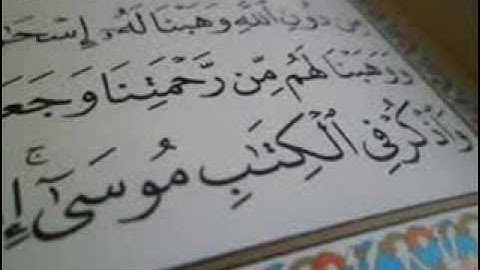 مِن دُونِ ٱللَّهِ وَهَبْنَا لَهُۥٓ إِسْحَٰ
وَوَهَبْنَا لَهُم مِّن رَّحْمَتِنَا وَجَعَ
وَٱذْكُرْ فِى ٱلْكِتَٰبِ مُوسَىٰٓ ۚ إِ